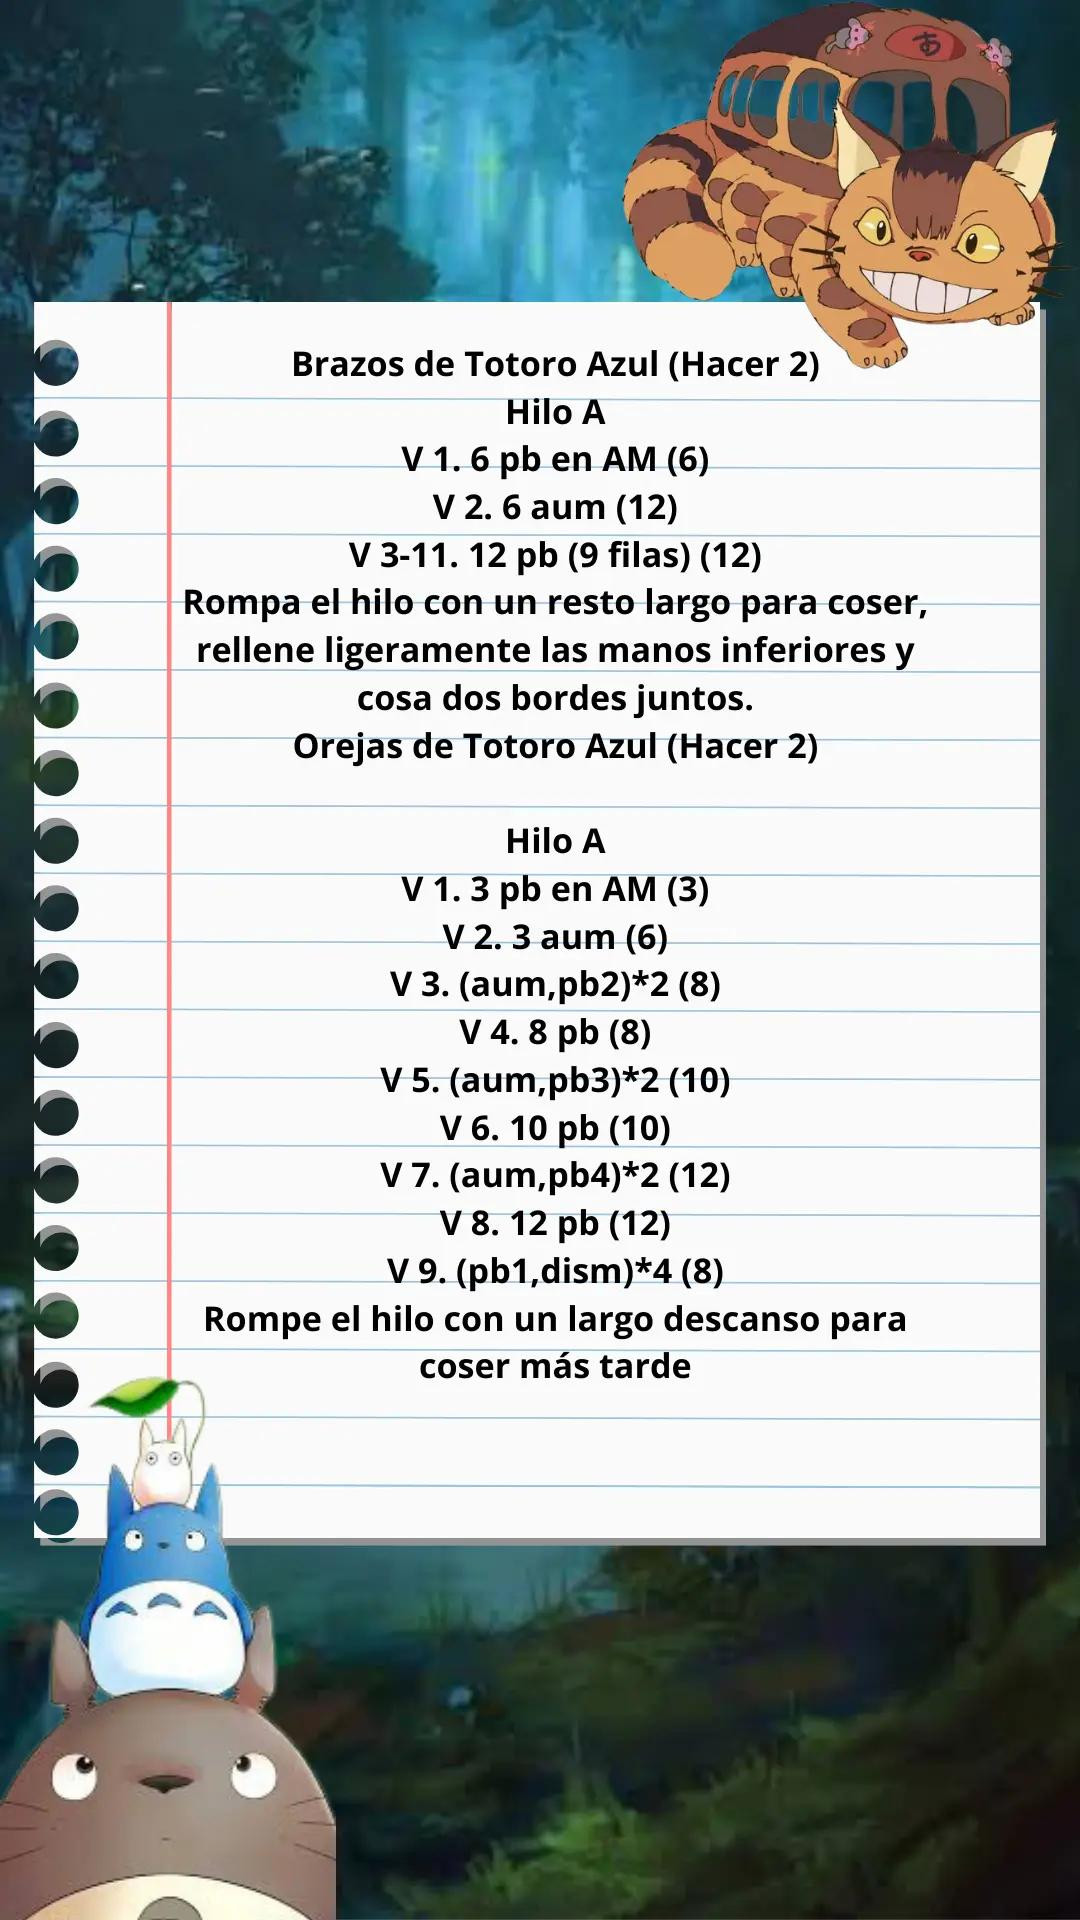 あ
Brazos de Totoro Azul (Hacer 2)
Hilo A
V 1. 6 pb en AM (6)
V 2. 6 aum (12)
V 3-11. 12 pb (9 filas) (12)
Rompa el hilo con un resto largo para coser,
rellene ligeramente las manos inferiores y
cosa dos bordes juntos.
Orejas de Totoro Azul (Hacer 2)
Hilo A
V 1. 3 pb en AM (3)
V 2. 3 aum (6)
V 3. (aum,pb2)*2 (8)
V 4. 8 pb (8)
V 5. (aum,pb3)*2 (10)
V 6. 10 pb (10)
V 7. (aum,pb4)*2 (12)
V 8. 12 pb (12)
V 9. (pb1,dism)*4 (8)
Rompe el hilo con un largo descanso para
coser más tarde